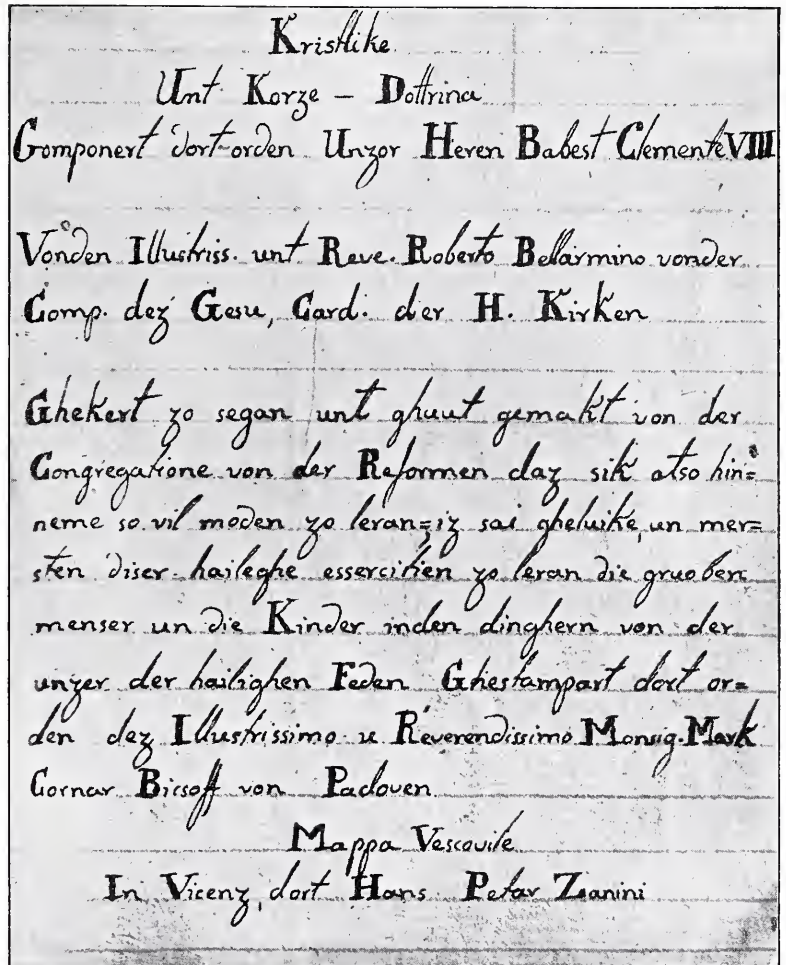 Kristlike
Unt Korze - Dottrina
Componert dort orden Unzor Heren Babest Clemente VIII
Vonden Illustriss. unt Reve. Roberto Bellarmino vonder
Comp. dez Gesu, Card. der H. Kirken
Ghekert zo segan unt ghuut gemakt von der
Congregatione von der Reformen daz sik atso hin=
neme so vil moden zo leran; iz sai gheluike, un mer=
sten diser haileghe essercitien zo leran die gruoben
menser un die Kinder inden dinghern von der
unzer der hailighen Feden Ghestampart dort or=
den dez Illustrissimo u Reverendissimo Monsig. Mark
Cornar Bicsoff von Padoven
Mappa Vescovile
In Vicenz, dort Hans Petar Zianini